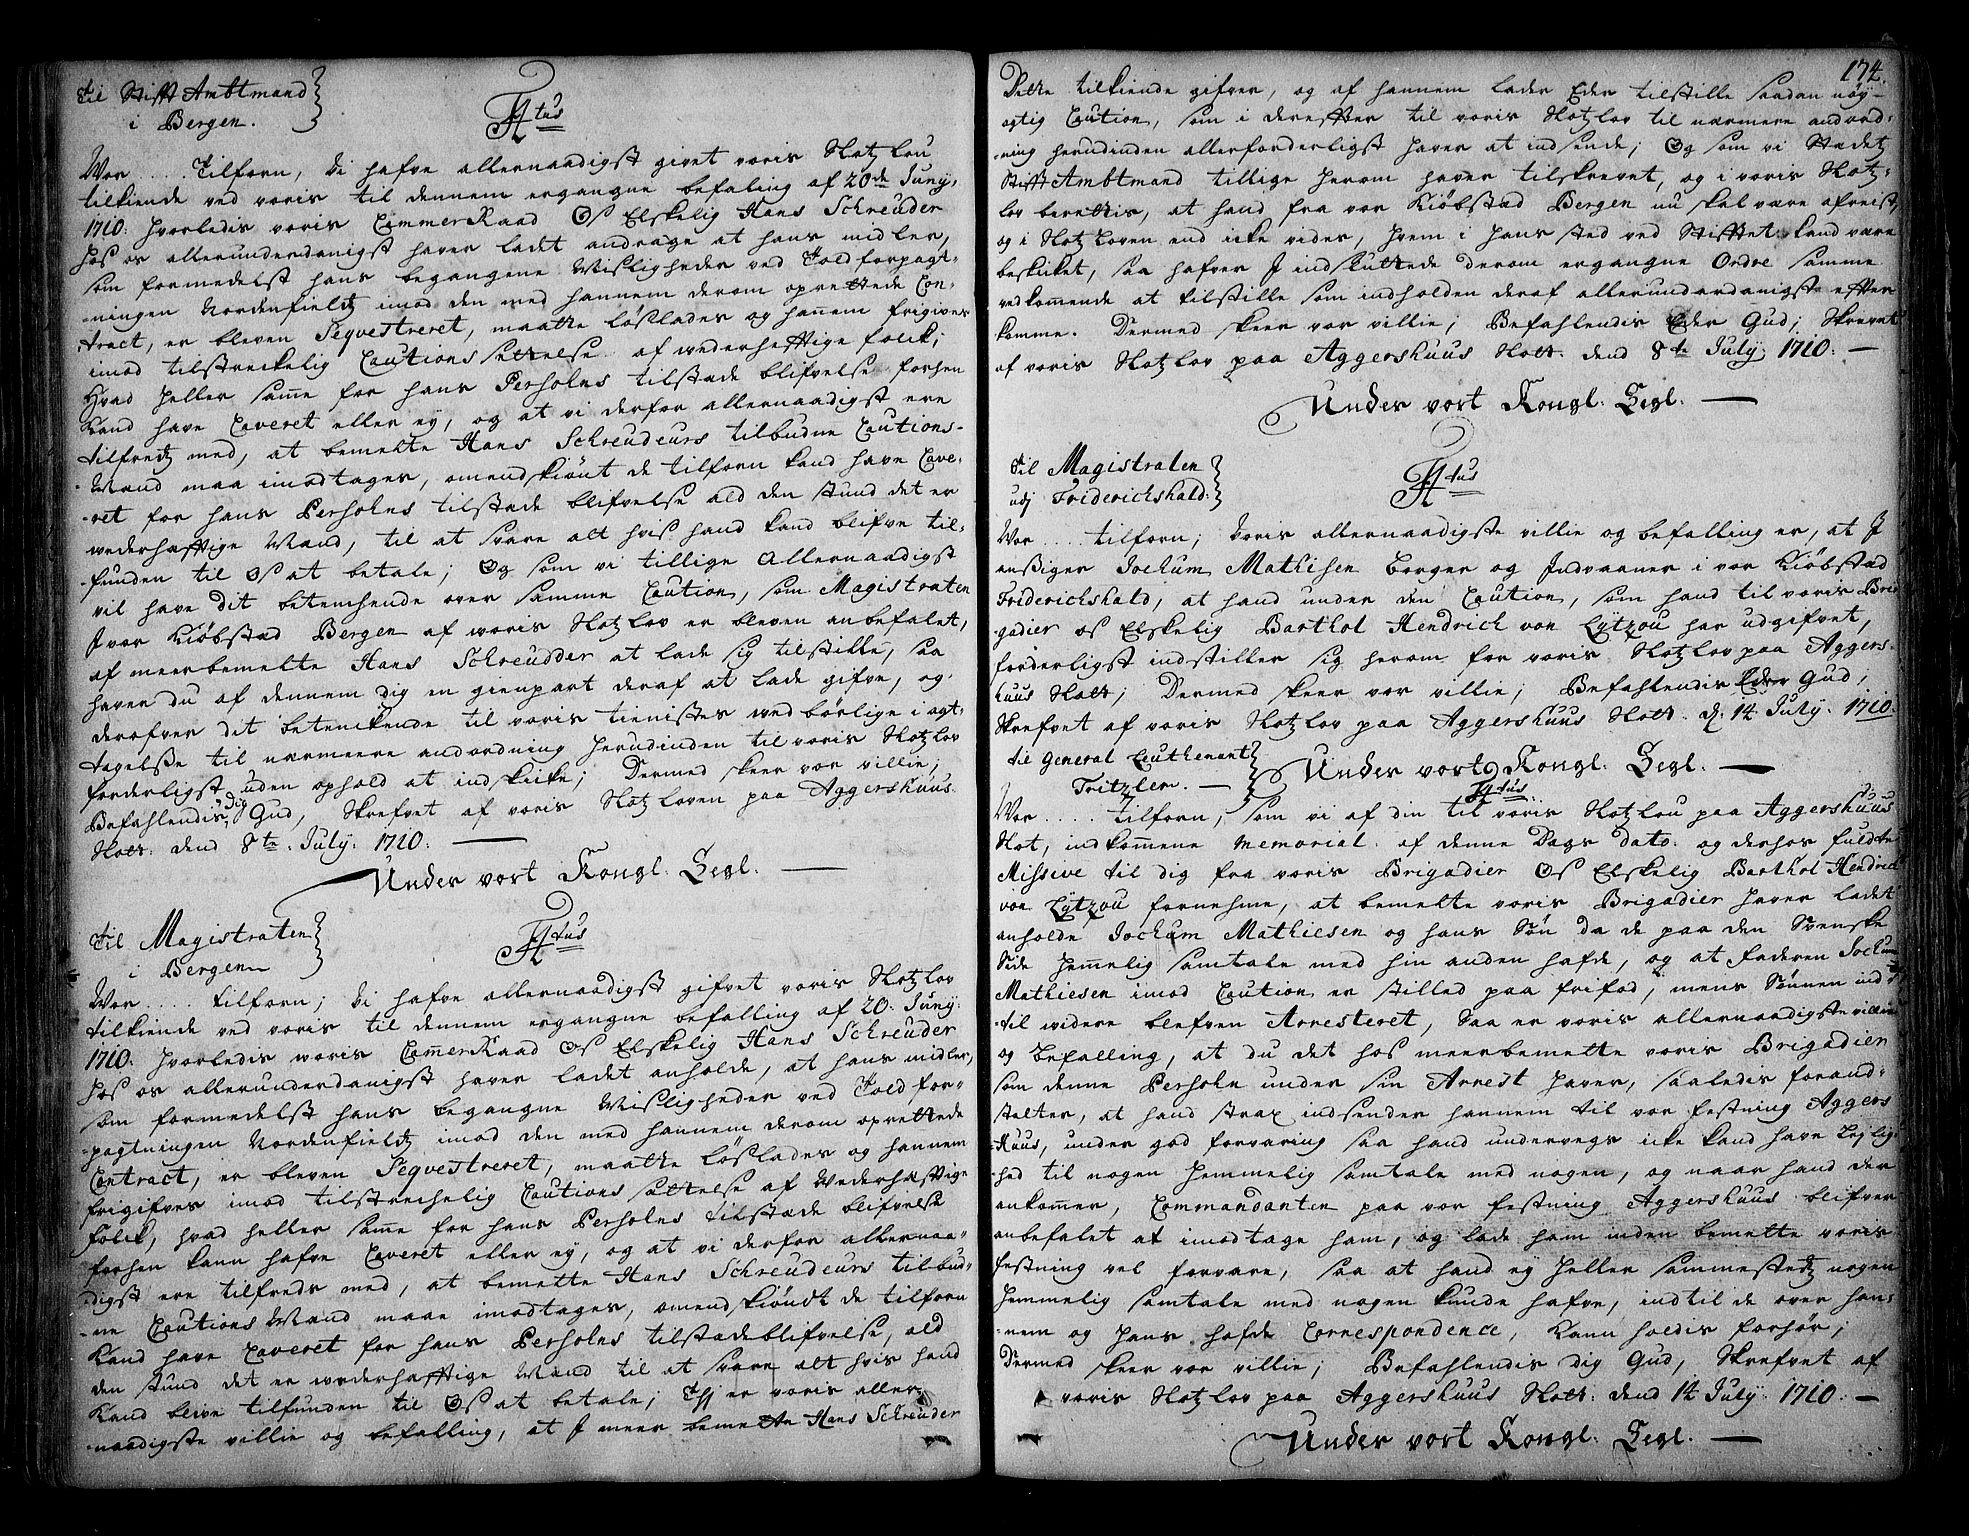 Til Stift Ambtmand
i Bergen.
F4tus
Vor .... Tilforn, Vi hafve allernaadigst givet voris Slotz Lou
tilkiende ved voris til dennem ergangne befaling af 20de Juny
1710: hvorledis voris CammerRaad Os Elskelig Hans Schreuder
hos os allerunderdanigst haver ladet andrage at hans midler,
som formedelst hans begangne Misligheder ved Toldforpagt-
-ningen Nordenfieldz imod den med hannem derom oprettede Con-
-tract, er bleven Seqvestreret, maatte løslades og hannem frigives
imod tilstreckelig Cautions settelse af wederhefftige folck;
Hvad heller samme for hans Persohns tilstæde blifvelse forhen
kand have Caveret eller ey, og at vi derfor allernaadigst ere
tilfredz med, at bemelte Hans Schreudeurs tilbudne Cautions-
Mænd maa imodtages, omendskiønt de tilforn kand have Cave-
-ret for hans Persohns tilstæde blifvelse ald den stund det er
wederhæfftige Mænd, til at svare alt hvis hand kand blifve til-
-funden til Os at betale; Og som vi tillige Allernaadigst
vil have dit betenchende over samme Caution, som Magistraten
I vor Kiøbstad Bergen af woris Slotz Lov er bleven anbefalet,
af meerbemelte Hans Schreudder at lade sig tilstille, saa
haver du af dennem dig en gienpart deraf at lade gifve, og
derofver dit betenckende til voris tienistes wedbørlige i agt-
tagelsse til nærmeere andordning herudinden til voris Slotz Lov
forderligst uden ophold at indskicke; Dermed skeer vor villie;
Befahlendis dig Gud, Skrefvet af voris Slotz Loven paa Aggershuus
Slott: dend 8te July. 1710.
Under vort Kongl. Segl.
Til Magistraten
i Bergen
F4tus
Vor .... tilforn; Vi hafve allernaadigst gifvet voris Slotz Lov
tilkiende ved voris til dennem ergangne befalling af 20. Juny.
1710. hvorledis woris CammerRaad Os Elskelig Hans Schreuder
hos os allerunderdanigst haver ladet anholde, at hans midler,
som formedelst hans begangne Misligheder ved Told for-
-pagtningen Nordenfieldz imod den med hannem derom oprettede
Contract, er bleven Seqvestreret, maatte løslades og hannem
frigifves imod tilstrechelig Cautions settelse af Wederhefftige
Folck, hvad heller samme for hans Persohns tilstæde blifvelse
forhen kann hafve Caveret eller ey, og at vi derfor allernaa-
-digst ere tilfreds med, at bemelte Hans Schreudeurs tilbud-
-ne Cautions Mænd maae imodtages, omendskiøndt de tilforn
kand have Caveret for hans Persohns tilstædeblifvelse, ald
den stund det er wederhæfftige Mænd til at svare alt hvis hand
kand blive tilfunden til Os at betale; Thj er voris aller-
-naadigste villie og befalling, at I meer bemelte Hans Schreuder
174.
Dette tilkiende gifver, og af hannem lader Eder tilstille saadan nøy-
agtig Caution, som i derefter til voris Slotz Lov til nærmere andord-
-ning herudinden allerforderligst haver at indsende; Og som vi Stædetz
Stifft Ambtmand tillige herom haver tilskrevet, og i voris Slotz-
lov berettis, at hand fra vor Kiøbstad Bergen nu skal være afreist,
og i Slotz Loven end icke vides, hvem i hans sted ved Stifftet kand være
beskicket, saa hafver I indsluttede derom ergangne Ordre samme
vedkommende at tilstille som indholden deraf allerunderdanigst effter
komme. Dermed skeer vor villie; Befahlendis Eder Gud; Skrevet
af voris Slotz Lov paa Aggershuus Slott. dend 8te July 1710.
Under vort Kongl. Segl.
Til Magistraten
udj Friderichshald.
F4tus
Vor .... tilforn; Voris allernaadigste villie og befalling er, at I
ansiger Jochum Mathisen borger og Indvaaner i vor Kiøbstad
Friderichshald, at hand under den Caution, som hand til voris Bri-
gadier os Elskelig Barthol Hendrich von Lÿtzou har udgifvet,
forderligst indstiller sig herom for voris Slotz Lov paa Aggers-
huus Slott; Dermed skeer vor villie; Befahlendis Eder Gud,
Skrefvet af voris Slotz Lov paa Aggershuus Slott. d. 14 July. 1710.
Under vort Kongl. Segl.
Til General Leuthenant
Tritzler.
F4tus.
Vor .... tilforn, som vi af din til voris Slotz Lou paa Aggershuus
Slot, indkomne Memorial af denne Dags dato og derhos fulgte
Missive til dig fra voris Brigadier Os Elskelig Barthol Hendrich
von Lÿtzou fornehme, at bemelte voris Brigadier haver ladet
anholde Jochum Mathiesen og hans Søn da de paa den Svenske
Side hemmelig samtale med hin anden hafde, og at faderen Jochum
Mathiesen imod Caution er stilled paa frifod, mens Sønnen ind-
-til widere blefven Arresteret, Saa er voris allernaadigste villie
og befalling, at du det hos meerbemelte voris Brigadier
som denne Persohn under sin Arrest haver, saaledis foran-
stalter, at hand strax indsender hannem til vor festning Aggers
Huus, under god forvaring saa hand undervegs icke kand have Lejlig-
-hed til nogen hemmelig samtale med nogen, og naar hand der
ankommer, Commandanten paa vor festning Aggershuus blifver
anbefalet at imodtage ham, og lade ham inden bemelte voris
festning vel forvare, saa at hand ey heller sammestedz nogen
hemmelig samtale med nogen kunde hafve, indtil de over han-
-nem og hans hafde Correspondence, kann holdis forhør;
Dermed skeer vor villie; Befahlendis dig Gud, Skrefvet af
voris Slotz Lov paa Aggershuus Slott: dend 14 July. 1710.
Under vort Kongl. Segl.